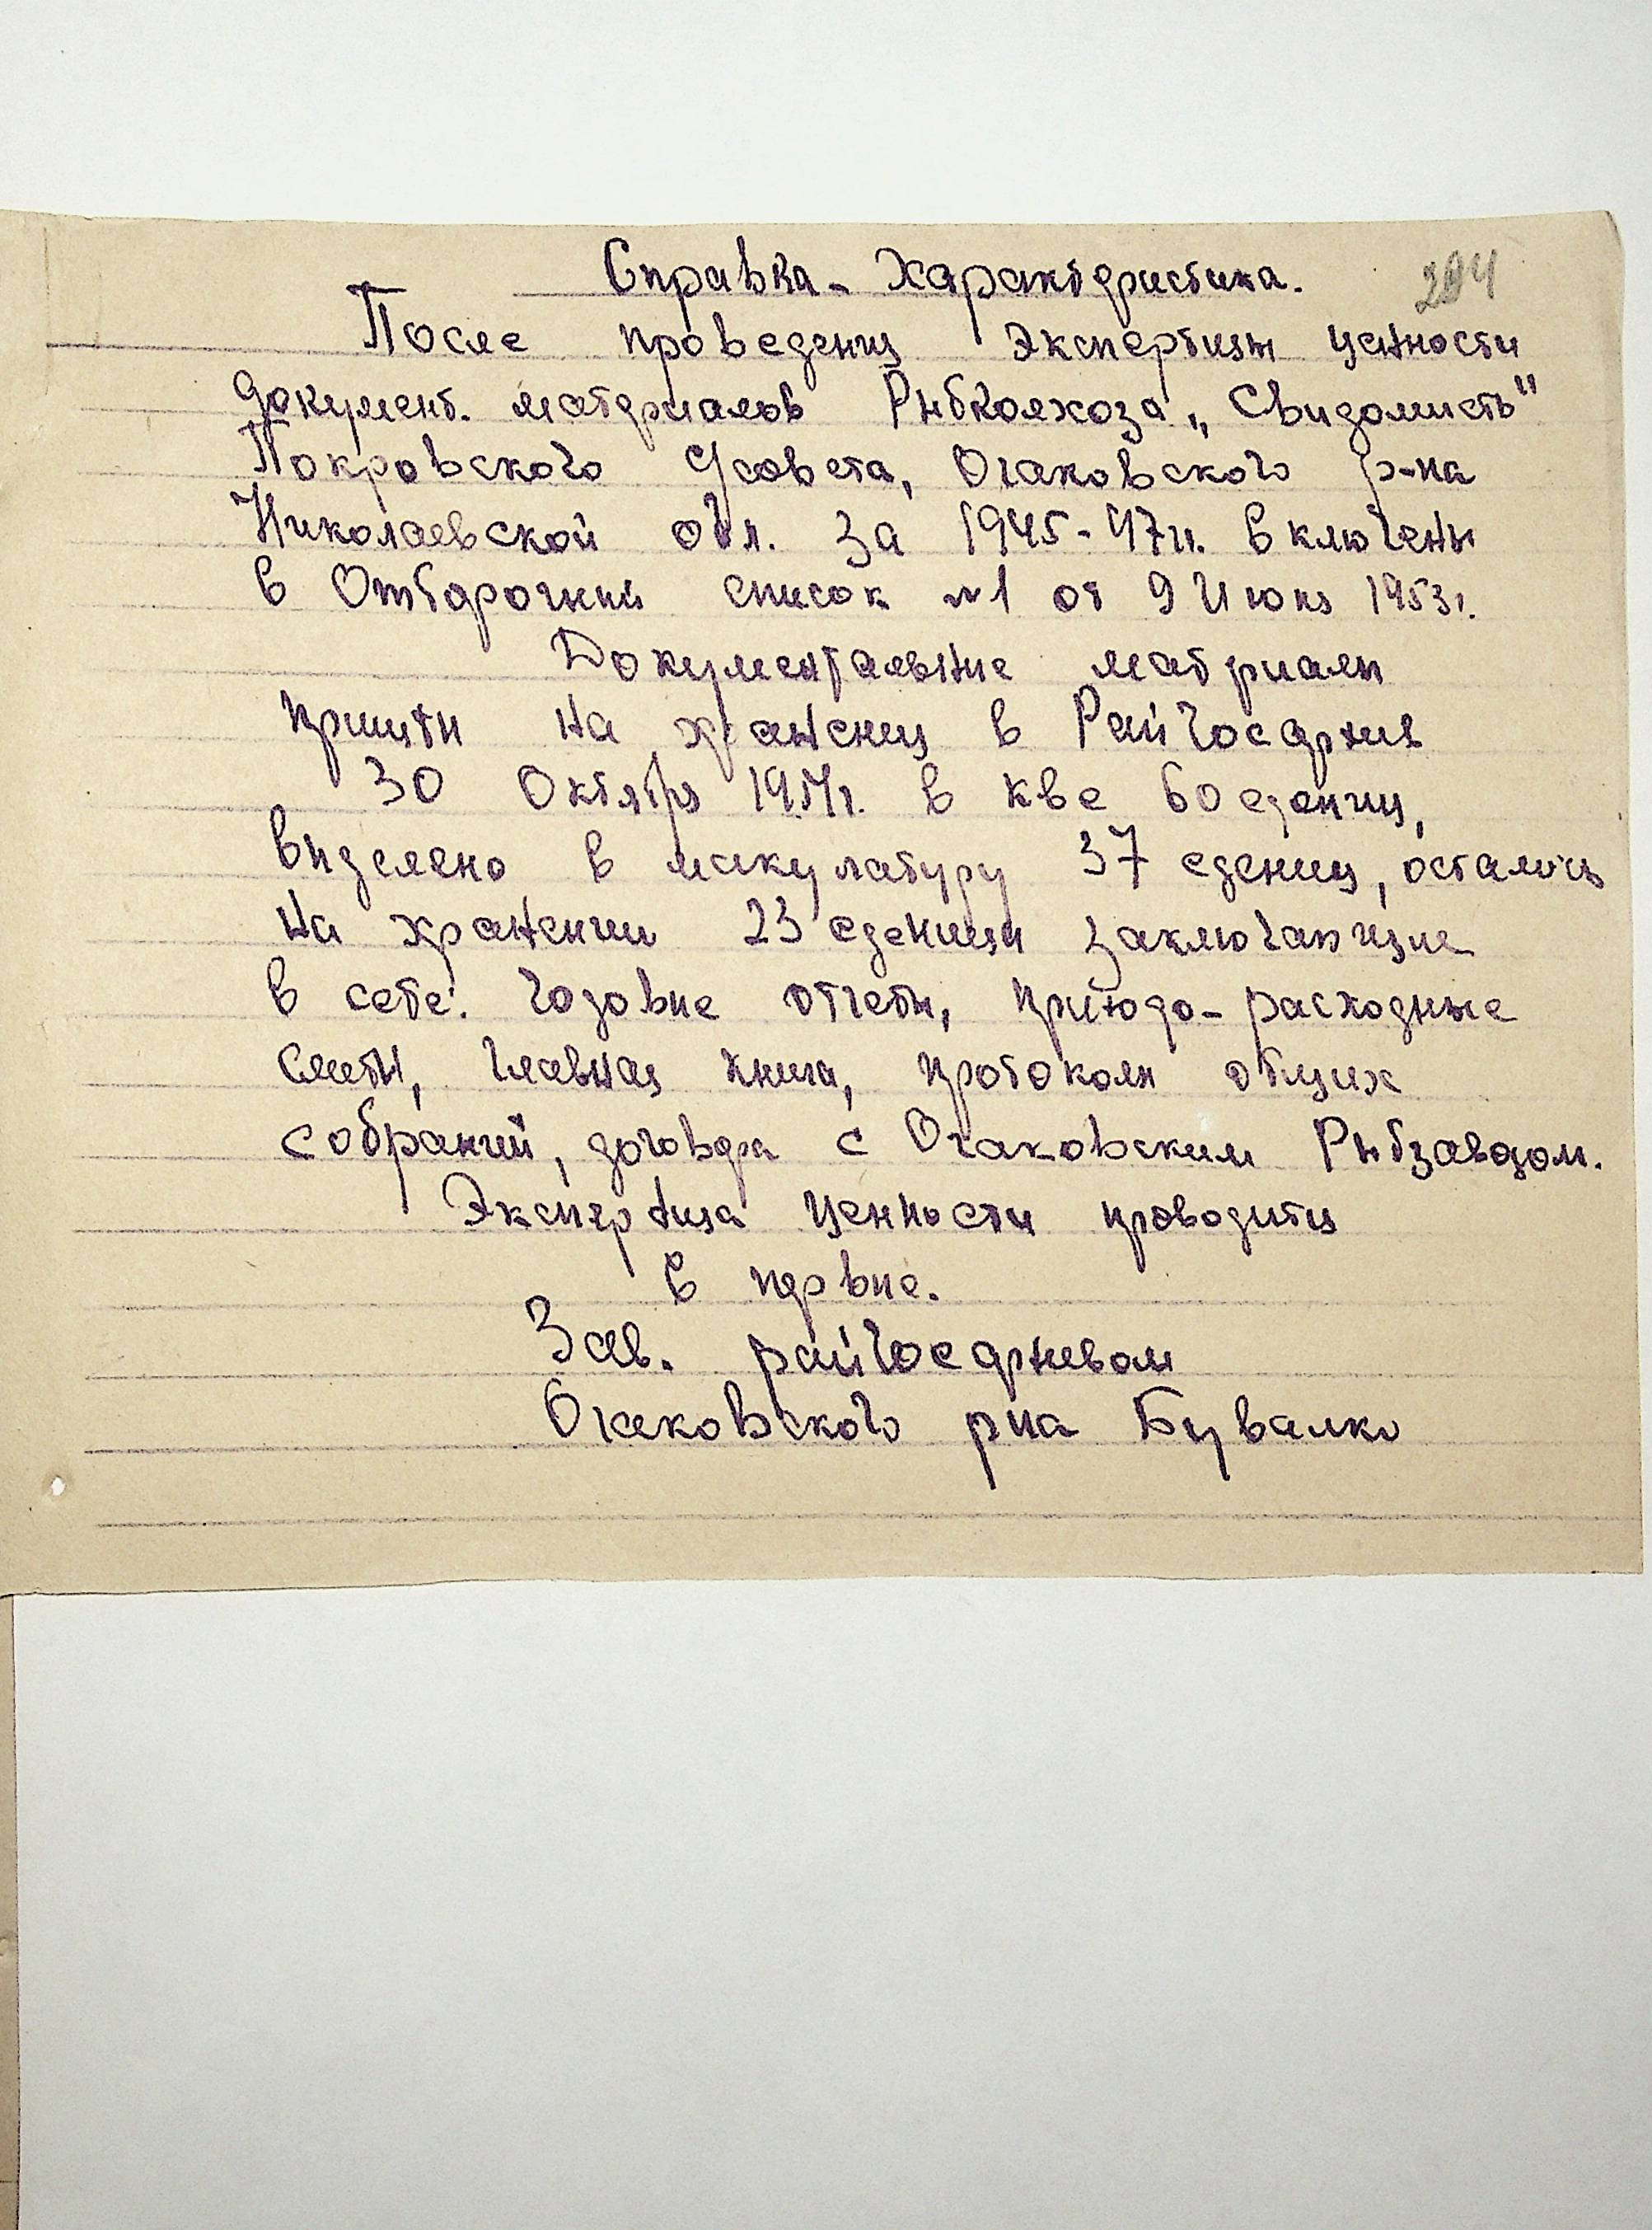 204
Справка - Характеристика.
После проведения Экспертизы ценности
документ. материалов Рыбколхоза „Свидомисть"
Покровского С/совета, Очаковского р-на
Николаевской обл. За 1945-47гг. Включены
в Отборочный список №1 от 9 Июня 1953г.
Документальные материалы
приняты на хранения в РайГосархив
30 Октября 1951г. в кве 60 едениц,
выделено в макулатуру 37 едениц, осталось
на хранении 23 еденицы заключающие
в себе: Годовые отчеты, приходо-расходные
сметы, Главная книга, протоколы общих
собраний, договора с Очаковским Рыбзаводом.
Экспертиза ценности проводится
в первые.
Зав. райГосархивом
Очаковского рна Бувалко